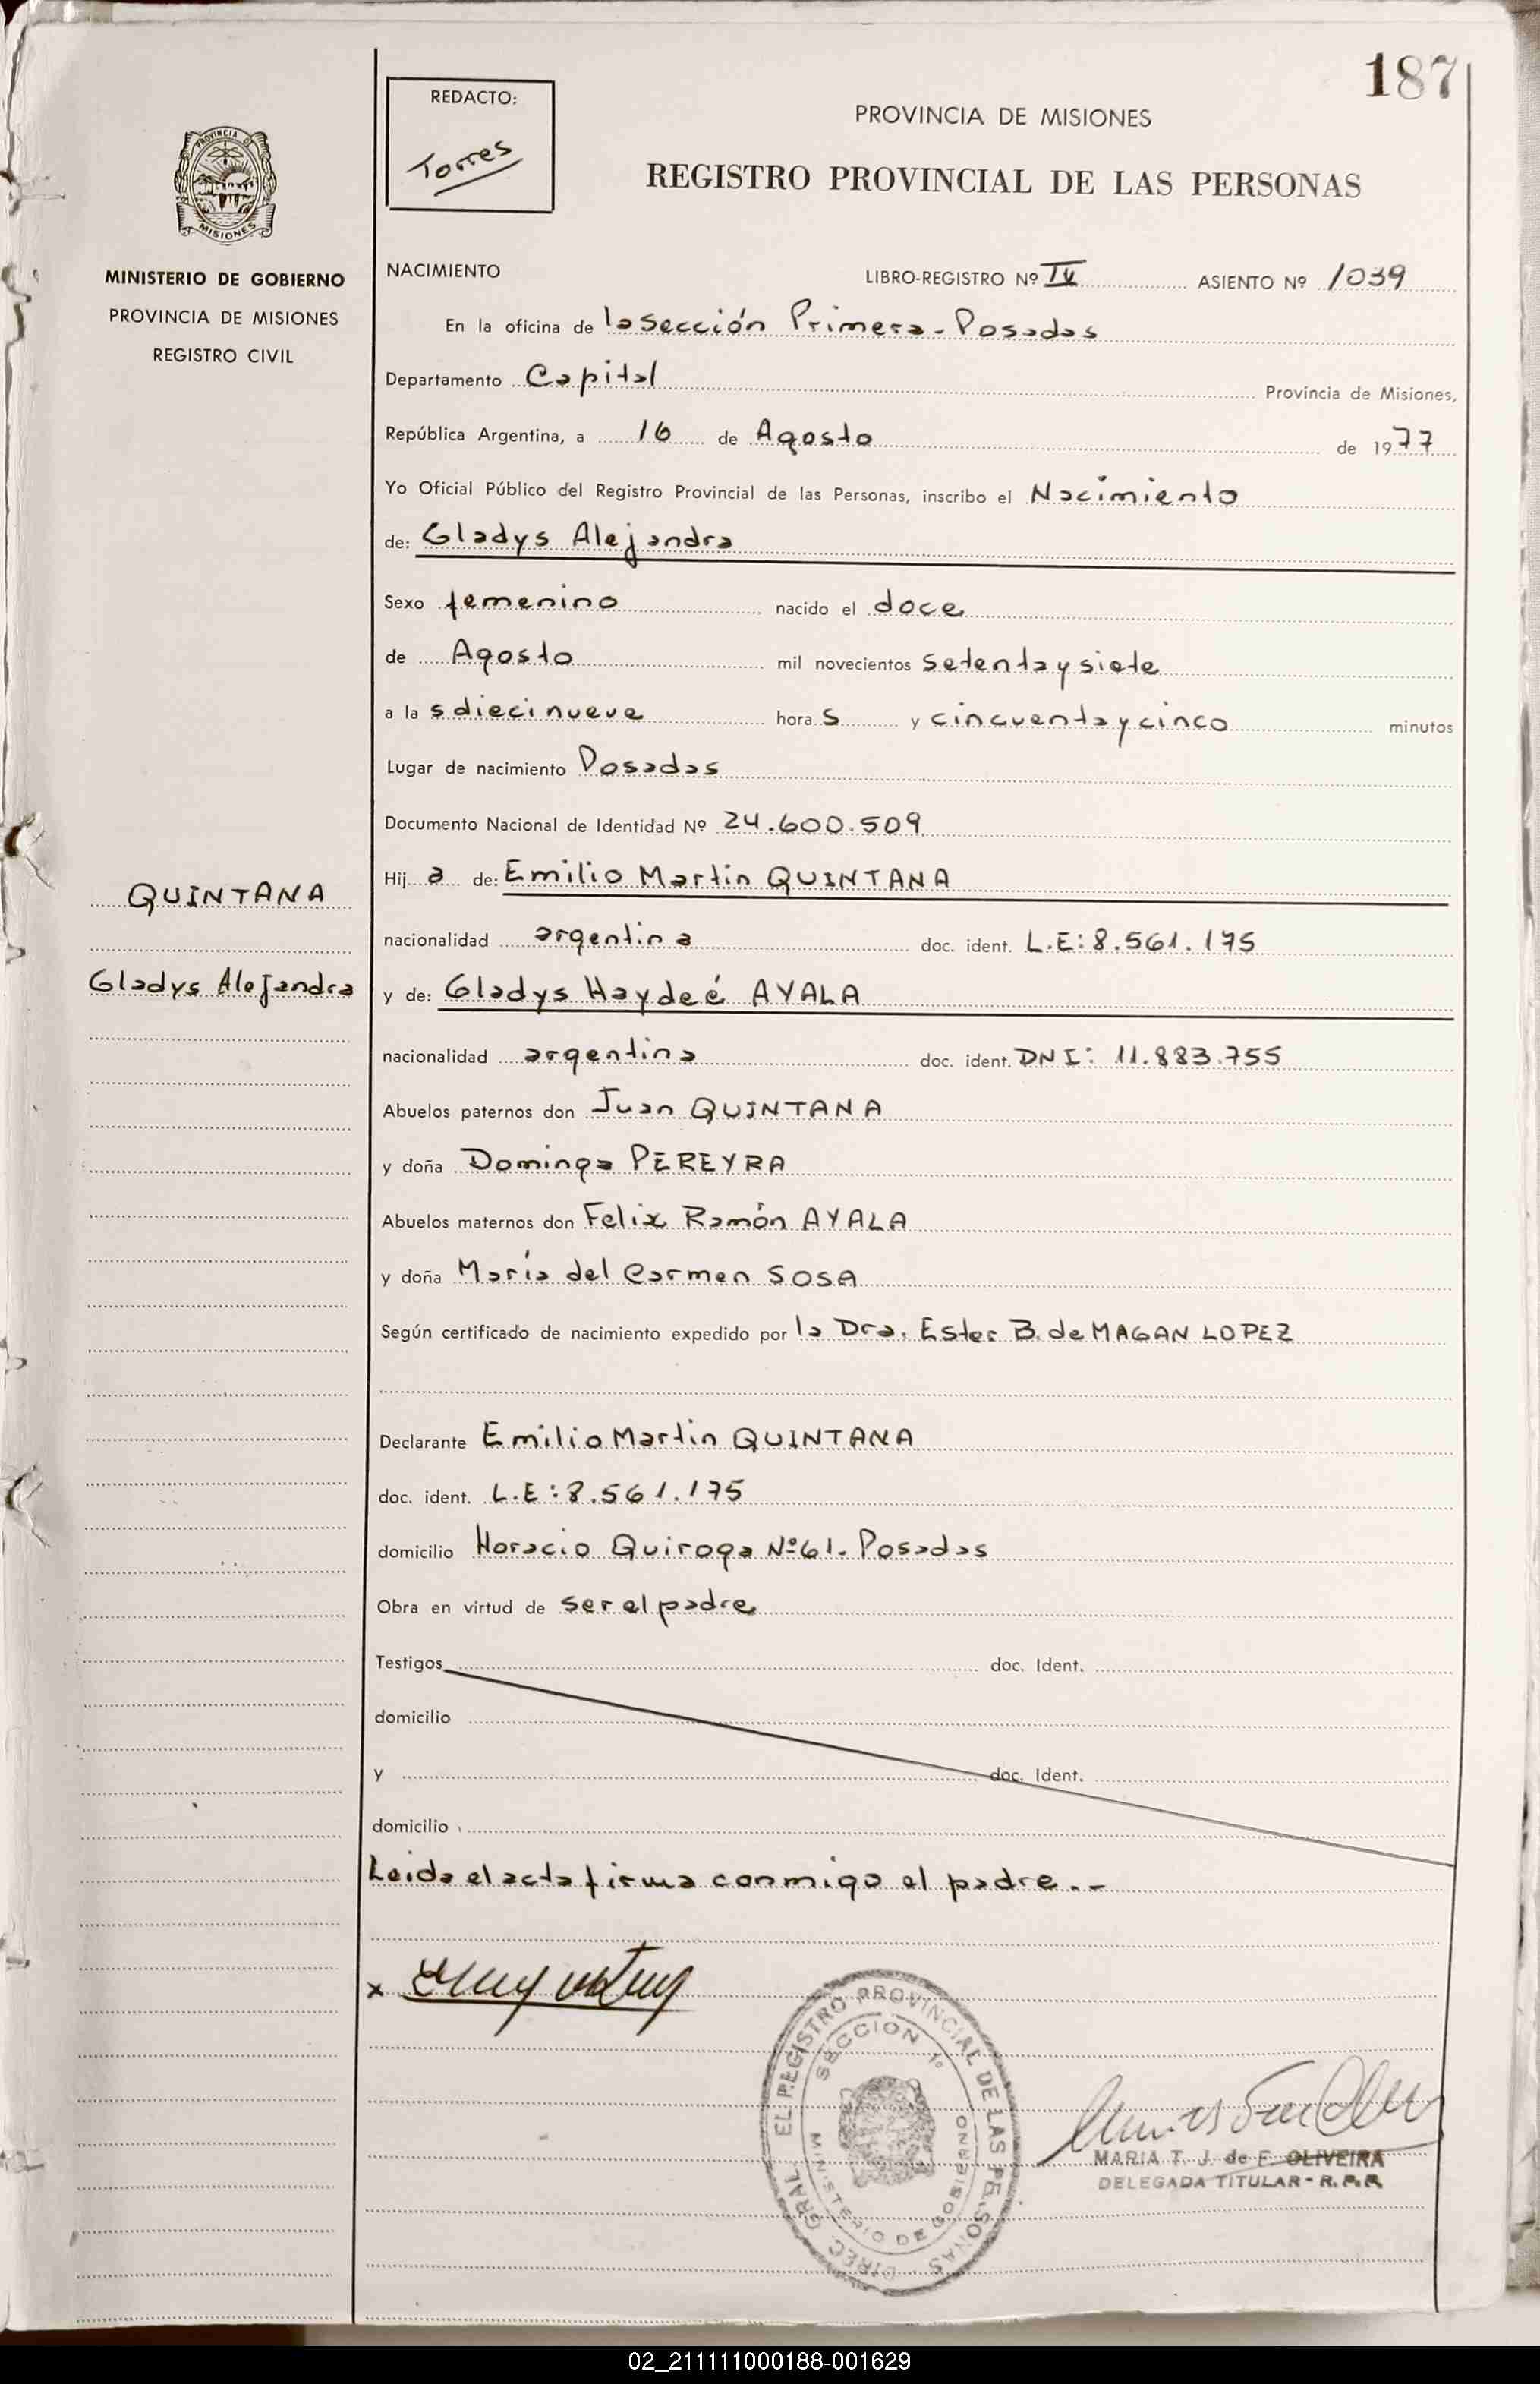 187
REDACTO:
Torres
PROVINCIA DE MISIONES
REGISTRO PROVINCIAL DE LAS PERSONAS
PROVINCIA D
MISIONES
MINISTERIO DE GOBIERNO
PROVINCIA DE MISIONES
REGISTRO CIVIL
NACIMIENTO LIBRO-REGISTRO Nº IV ASIENTO Nº 1039
En la oficina de la Sección Primera - Posadas
Departamento Capital Provincia de Misiones,
República Argentina, a 16 de Agosto de 1977
Yo Oficial Público del Registro Provincial de las Personas, inscribo el Nacimiento
de: Gladys Alejandra
Sexo femenino nacido el doce
de Agosto mil novecientos setenta y siete
a las diecinueve horas y cincuenta y cinco minutos
Lugar de nacimiento Posadas
Documento Nacional de Identidad Nº 24.600.509
Hija de: Emilio Martin QUINTANA
QUINTANA
nacionalidad argentina doc. ident. L.E: 8.561.175
Gladys Alejandra
y de: Gladys Haydeé AYALA
nacionalidad argentina doc. ident. DNI: 11.883.755
Abuelos paternos don Juan QUINTANA
y doña Dominga PEREYRA
Abuelos maternos don Felix Ramón AYALA
y doña María del Carmen SOSA
Según certificado de nacimiento expedido por la Dra. Ester B. de MAGAN LOPEZ
Declarante Emilio Martin QUINTANA
doc. ident. L.E: 8.561.175
domicilio Horacio Quiroga Nº 61 - Posadas
Obra en virtud de ser el padre
Testigos doc. Ident.
domicilio
y doc. Ident.
domicilio
Leida el acta firma conmigo el padre.-
x
DIREC. GRAL. EL REGISTRO PROVINCIAL DE LAS PERSONAS
SECCION 1º
MINISTERIO DE GOBIERNO
MARIA T. J. de F. OLIVEIRA
DELEGADA TITULAR - R.P.P.
02_211111000188-001629